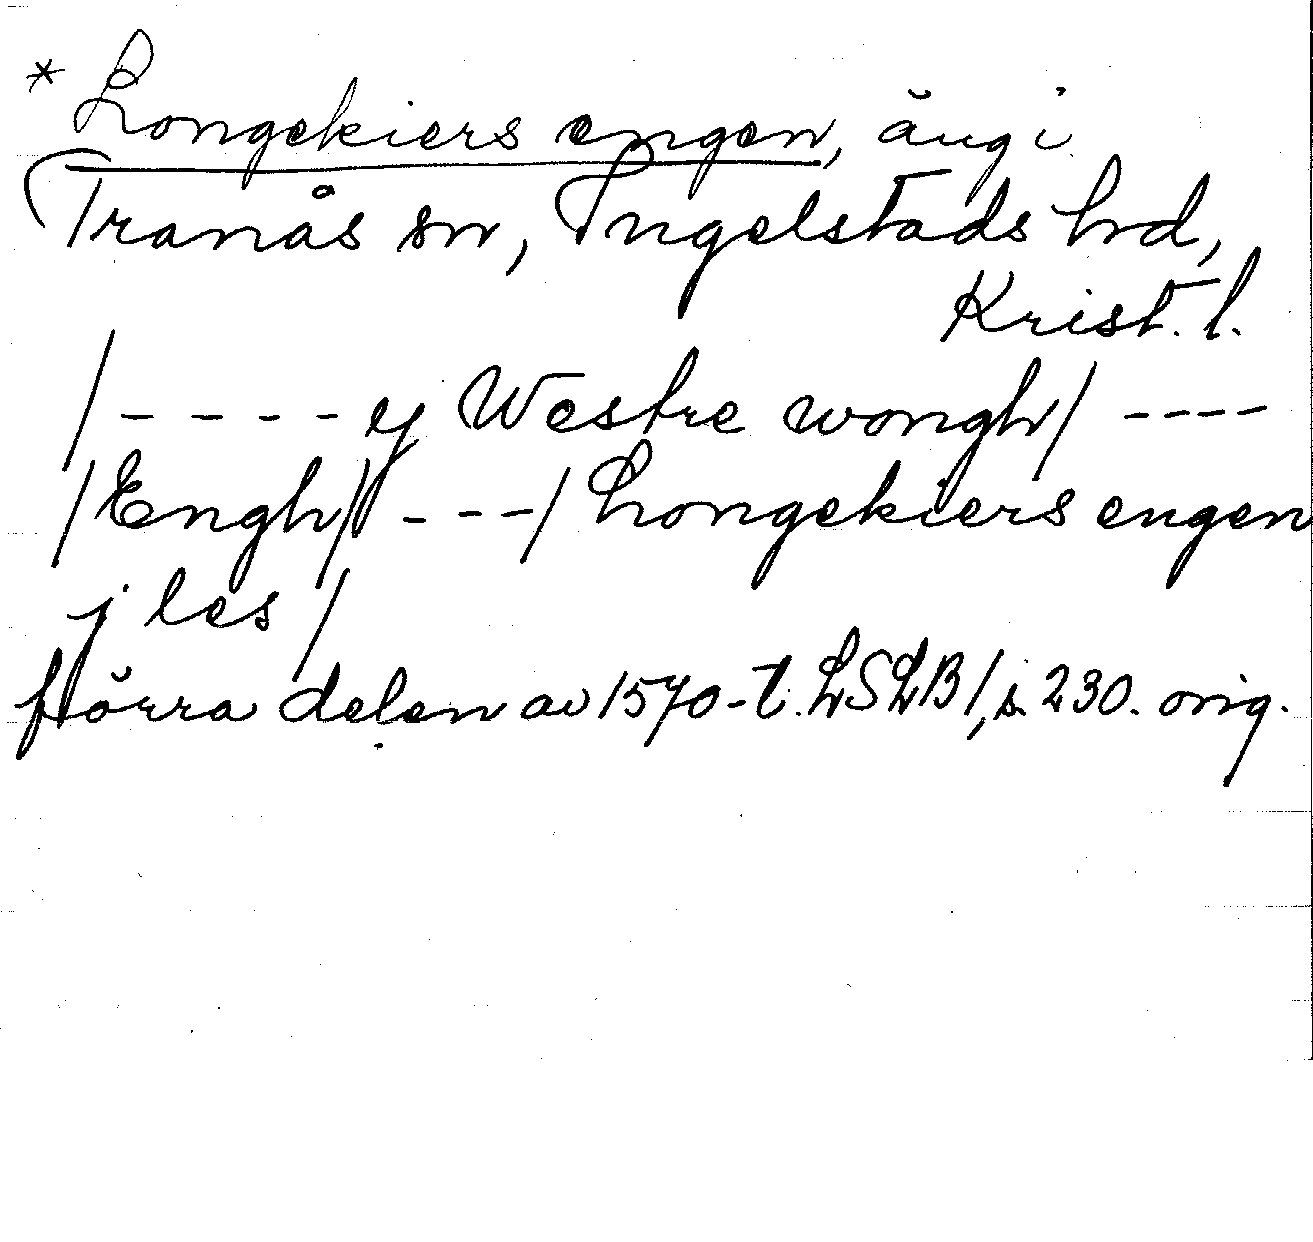 * Longekiers engen, äng i
Tranås sn, Ingelstads hd,
Krist. l.
/ - - - - ej Westre wongh/ - - - -
/Engh/ - - - / Longekiers engen
j les /
förra delen av 1570-t. LSLB 1, s. 230. orig.